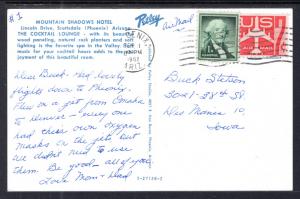 #1
MOUNTAIN SHADOWS HOTEL
Lincoln Drive, Scottsdale (Phoenix) Arizona
THE COCKTAIL LOUNGE - with its beautiful
wood paneling, natural rock planters and soft
lighting is the favorite spot in the Valley Sun
made for your cocktail hours adds to the pleasures
of this beautiful hotel.
Petley
Air Mail
PHOENIX
PM
ARIZ.
U.S. AIR MAIL
Dear Buck - Had lovely
flights down to Phoenix.
Flew on a jet from Omaha
to Denver - every one
had their own oxygen
masks on the jets, but
we didn't need to use
them. Be good - all of you
Love Mom + Dad
Buck Station
3021-38th St
Des Moines 10
Iowa